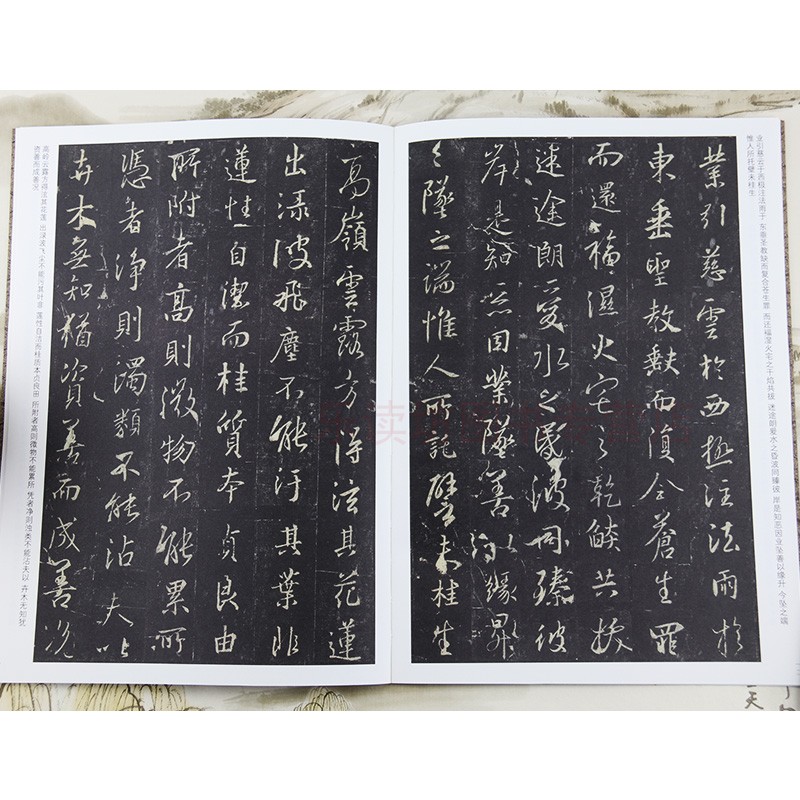 业引慈云于西极注法雨于 东垂圣教缺而复合苍生罪 而还福湿火宅之干焰共拔 迷途朗爱水之昏波同臻彼 岸是知恶因业坠善以缘升 今坠之端
惟人所托壁未桂生
業引慈雲於西極注法雨於
東垂聖教缺而復全蒼生罪
而還福濕火宅之乾燄共拔
迷途朗愛水之昏波同臻彼
岸是知惡因業墜善以緣昇
々墜之端惟人所託譬夫桂生
高嶺雲露方得泫其花蓮
出淥波飛塵不能汙其葉非
蓮性自潔而桂質本貞良由
所附者高則微物不能累所
憑者淨則濁類不能沾夫以
卉木無知猶資善而成善況
高岭云露方得泫其花莲 出渌波飞尘不能污其叶非 莲性自洁而桂质本贞良由 所附者高则微物不能累所 凭者净则浊类不能沾夫以 卉木无知犹
资善而成善况